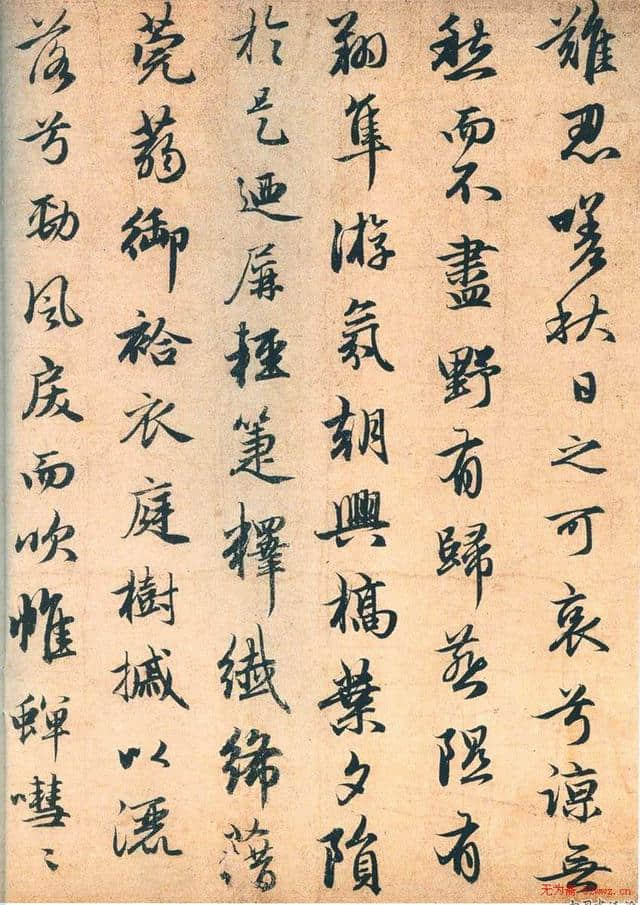 難忍嗟秋日之可哀兮諒無
愁而不盡野有歸燕隰有
翔隼游氛朝興槁葉夕隕
於是迺屏輕箑釋纖絺藉
莞蒻御袷衣庭樹摵以灑
落兮勁風戾而吹帷蟬嘒〻
无为斋